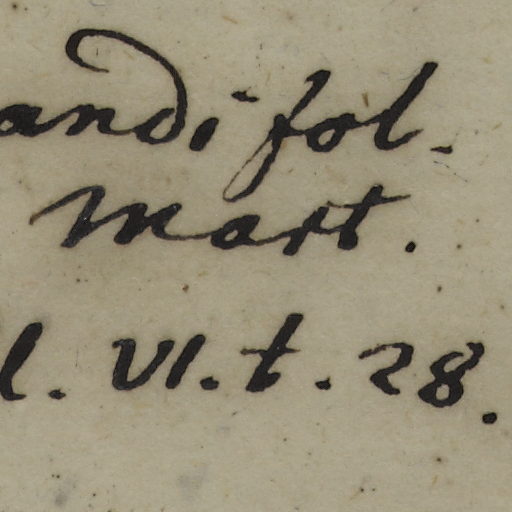 andi fol.
mart.
l. VI. t. 28.